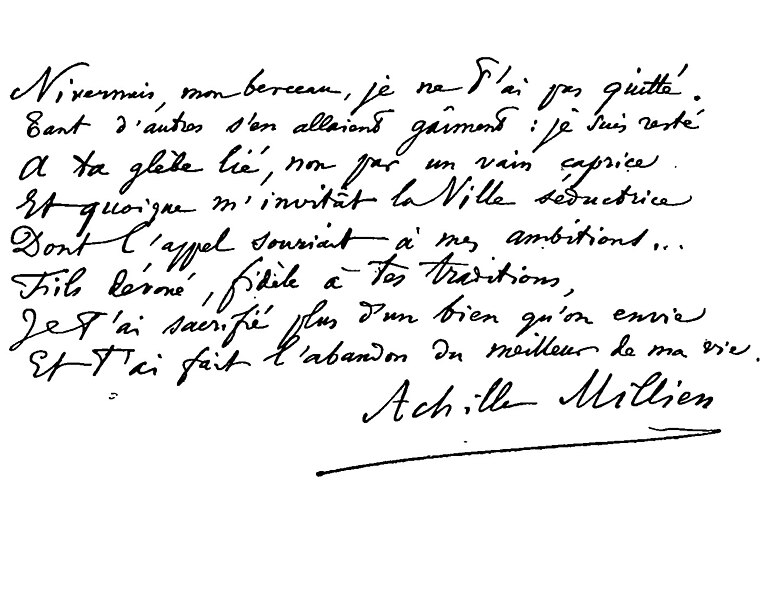 Nivernais, mon berceau, je ne t'ai pas quitté.
Tant d'autres s'en allaient gaîment : je suis resté
A ta glèbe lié, non par un vain caprice
Et quoique m'invitât la Ville séductrice
Dont l'appel souriait à mes ambitions...
Fils dévoué, fidèle à tes traditions,
Je t'ai sacrifié plus d'un bien qu'on envie
Et t'ai fait l'abandon du meilleur de ma vie.
Achille Millien